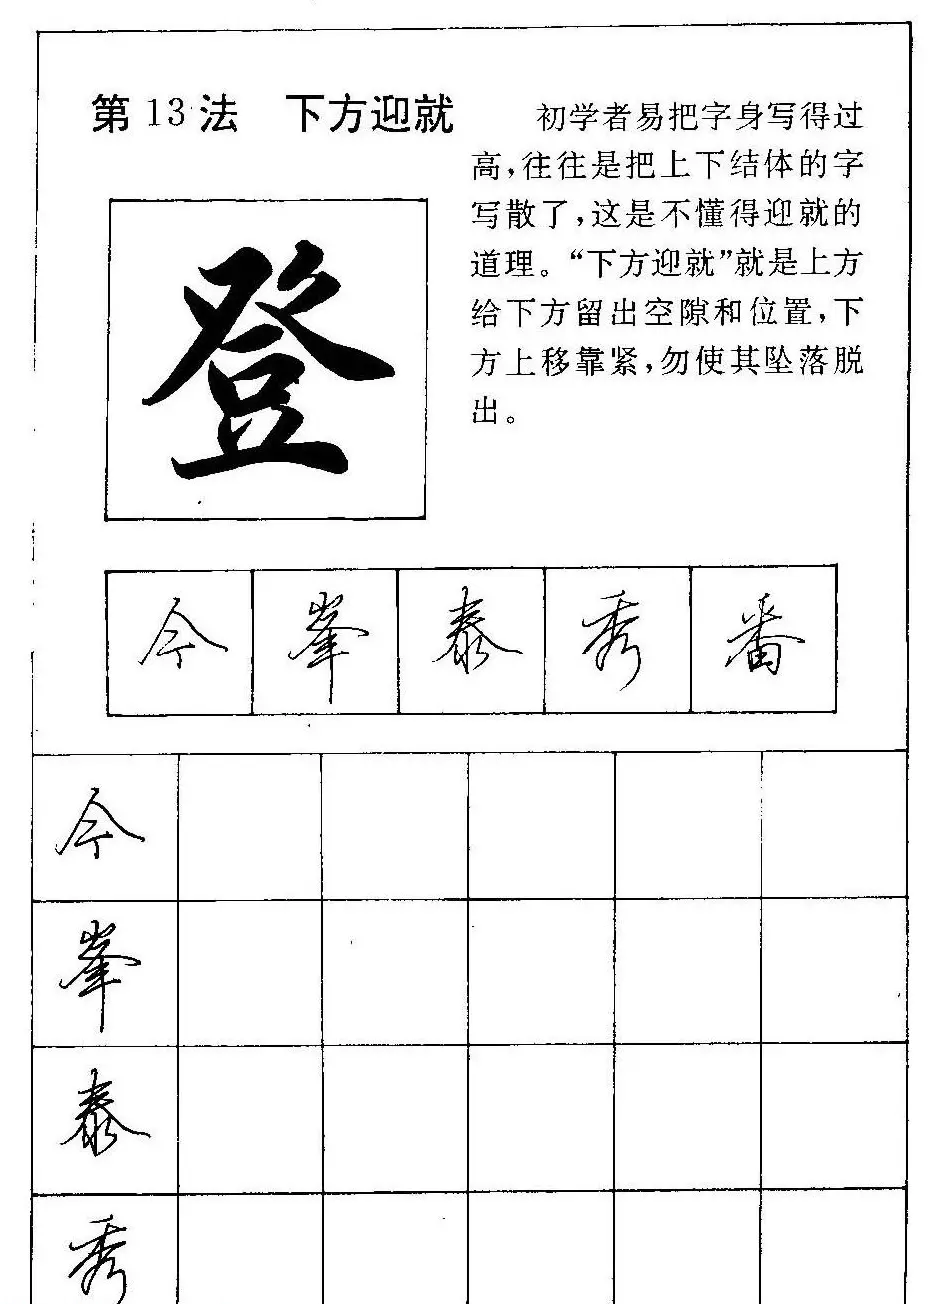 第13法 下方迎就
初学者易把字身写得过
高,往往是把上下结体的字
写散了,这是不懂得迎就的
道理。“下方迎就”就是上方
给下方留出空隙和位置,下
方上移靠紧,勿使其坠落脱
出。
登
今 峯 泰 秀 番
今
峯
泰
秀